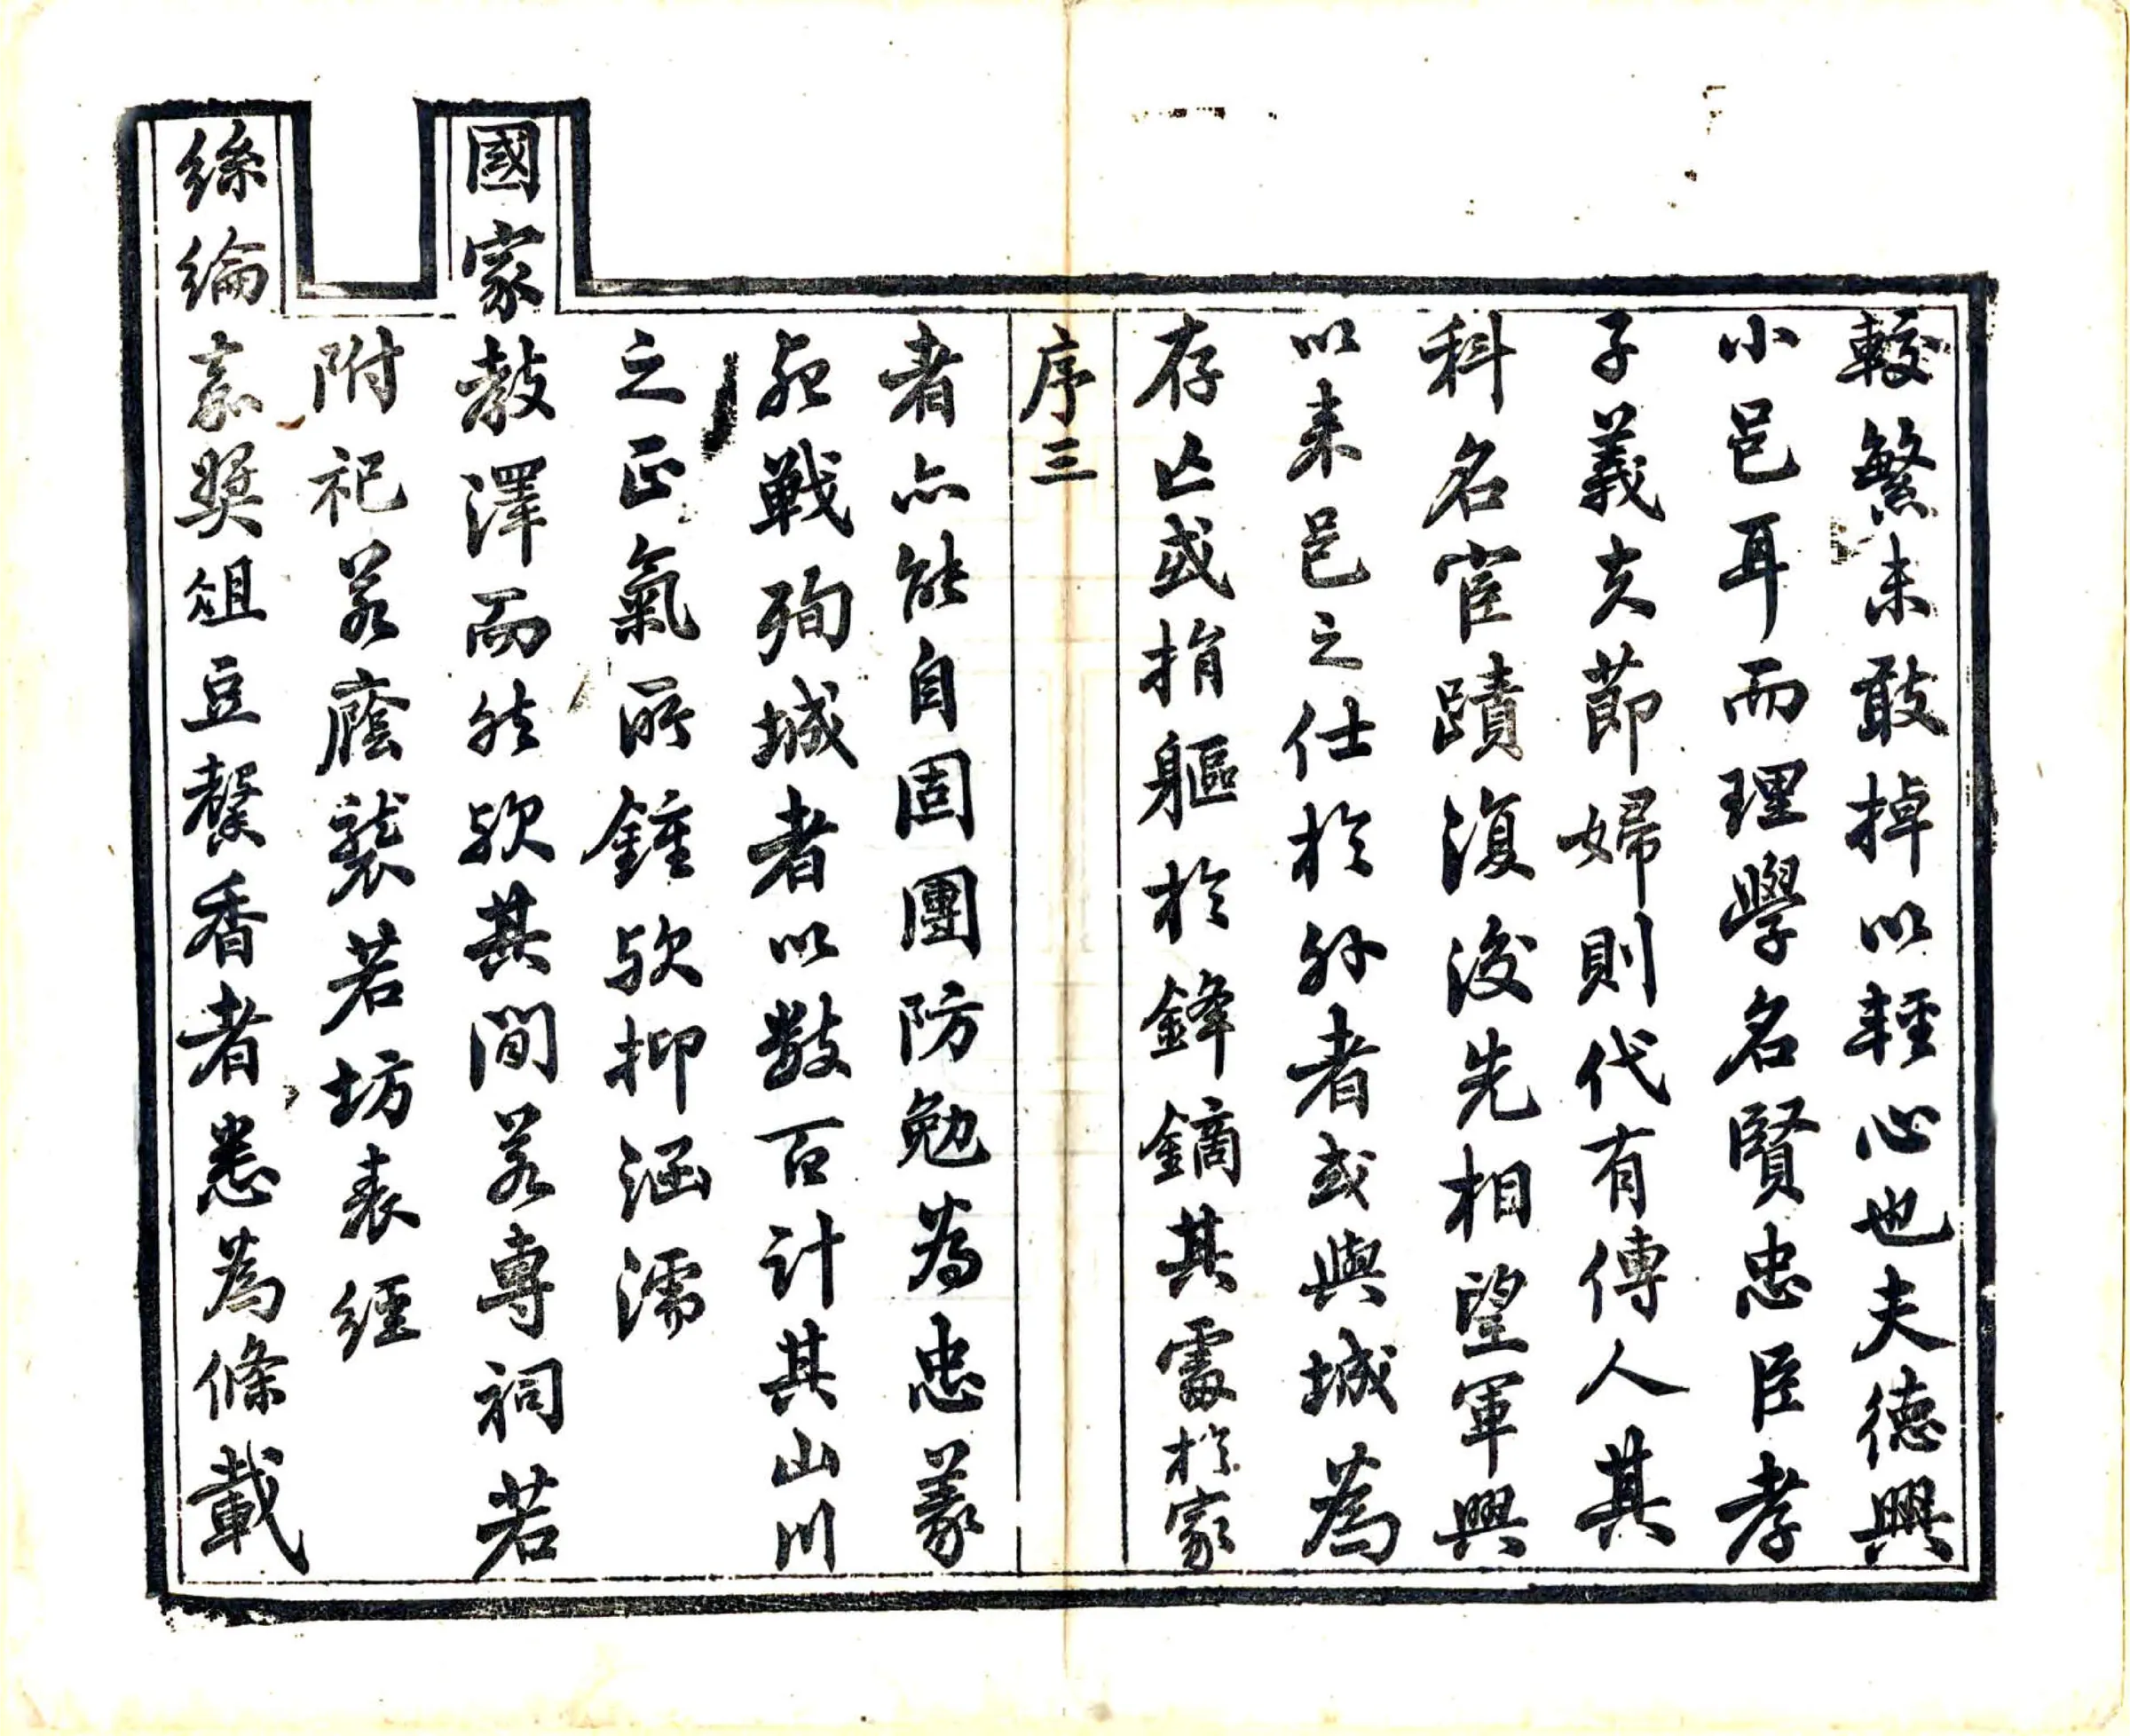 較繁未敢掉以輕心也夫德興
小邑耳而理學名賢忠臣孝
子義夫節婦則代有傳人其
科名宦蹟復後先相望軍興
以来邑之仕於外者或與城為
存亡或捐軀於鋒鏑其處於家
序三
者亦能自固團防勉為忠義
死戰殉城者以數百計其山川
之正氣所鍾歟抑涵濡
國家教澤而然歟其間若專祠若
附祀若廕襲若坊表經
絲綸嘉奬俎豆馨香者悉為條載